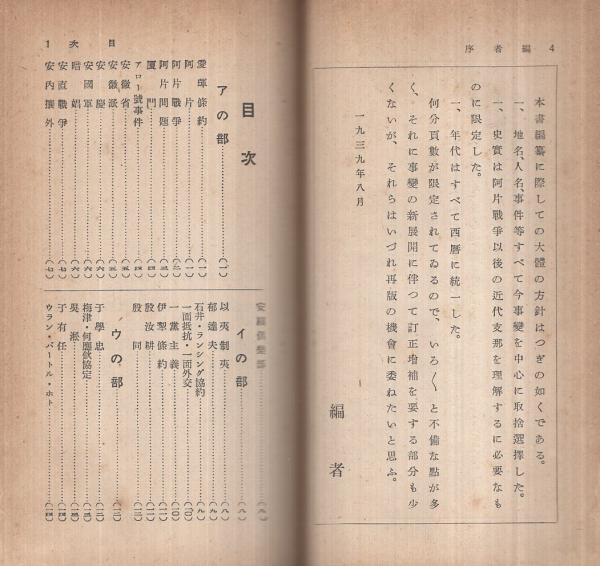 4 編者序
本書編纂に際しての大體の方針はつぎの如くである。
一、地名、人名、事件等すべて今事變を中心に取捨選擇した。
一、史實は阿片戰爭以後の近代支那を理解するに必要なも
のに限定した。
一、年代はすべて西曆に統一した。
何分頁數が限定されてゐるので、いろ〱と不備な點が多
く、それに事變の新展開に伴つて訂正增補を要する部分も少
くないが、それらはいづれ再版の機會に委ねたいと思ふ。
一九三九年八月
編者
目次 1
目次
アの部…(一)
愛琿條約…(一)
阿片…(一)
阿片戰爭…(二)
阿片問題…(三)
厦門…(四)
アロー號事件…(四)
安徽省…(五)
安徽派…(五)
安慶…(六)
安國軍…(六)
暗娼…(六)
安直戰爭…(七)
安內攘外…(七)
イの部…(八)
以夷制夷…(八)
郁達夫…(九)
石井・ランシング協約…(九)
一面抵抗・一面外交…(一〇)
一黨主義…(一〇)
伊犂條約…(一一)
殷汝耕…(一一)
殷同…(一二)
ウの部…(一二)
于學忠…(一二)
梅津・何應欽協定…(一三)
吳淞…(一三)
于有任…(一四)
ウラン・バートル・ホト…(一四)